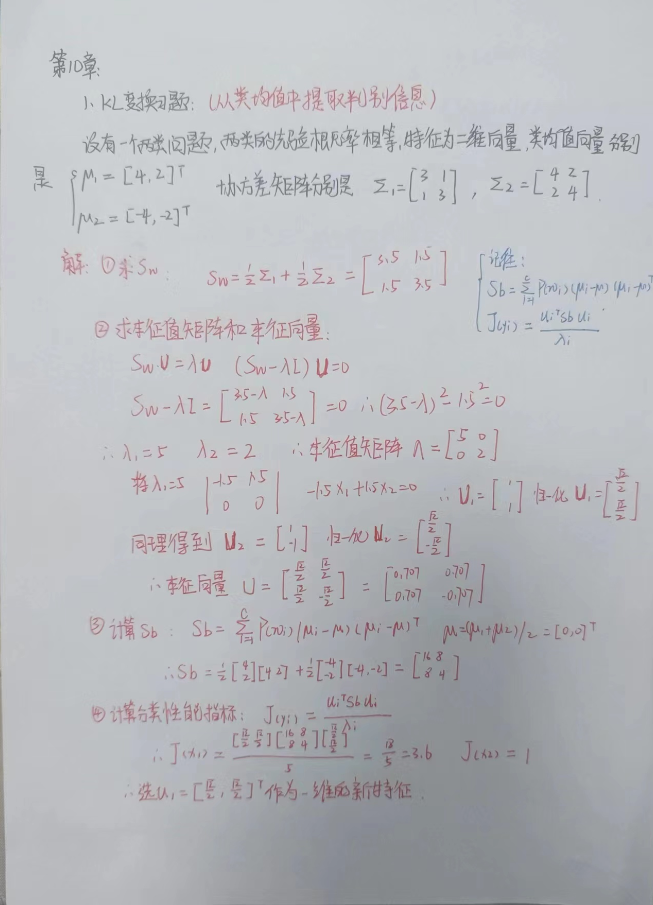 第10章:
1、KL变换习题: (从类均值中提取判别信息)
设有一个两类问题,两类的先验概率相等,特征为二维向量,类均值向量分别
是 { μ₁ = [4,2]ᵀ 协方差矩阵分别是 Σ₁=[3 1; 1 3] , Σ₂=[4 2; 2 4].
μ₂ = [-4,-2]ᵀ
解: ①求Sw: Sw = ½Σ₁ + ½Σ₂ = [3.5 1.5; 1.5 3.5]
记住:
Sb = Σᵢ₌₁ᶜ P(wᵢ)(μᵢ-μ)(μᵢ-μ)ᵀ
J(yᵢ) = uᵢᵀSbuᵢ/λᵢ.
②求本征值矩阵和本征向量:
Sw U = λU (Sw-λI)U=0
Sw-λI = [3.5-λ 1.5; 1.5 3.5-λ] =0 ∴(3.5-λ)²-1.5²=0
∴λ₁=5 λ₂=2 ∴本征值矩阵 Λ=[5 0; 0 2]
将λ₁=5 |-1.5 1.5; 0 0| -1.5x₁+1.5x₂=0 ∴U₁=[1; 1] 归一化 U₁=[√2/2; √2/2]
同理得到 U₂ = [1; -1] 归一化 U₂ = [√2/2; -√2/2]
∴本征向量 U = [√2/2 √2/2; √2/2 -√2/2] = [0.707 0.707; 0.707 -0.707]
③计算Sb: Sb = Σᵢ₌₁ᶜ P(wᵢ)(μᵢ-μ)(μᵢ-μ)ᵀ μ=(μ₁+μ₂)/2=[0,0]ᵀ
∴Sb = ½[4; 2][4 2] + ½[-4; -2][-4,-2] = [16 8; 8 4]
④计算分类性能指标: J(yᵢ) = uᵢᵀSbuᵢ/λᵢ
∴J(x₁) = [√2/2 √2/2][16 8; 8 4][√2/2; √2/2]/5 = 18/5 = 3.6 J(x₂) = 1
∴选u₁ = [√2/2, √2/2]ᵀ作为一维的新特征.